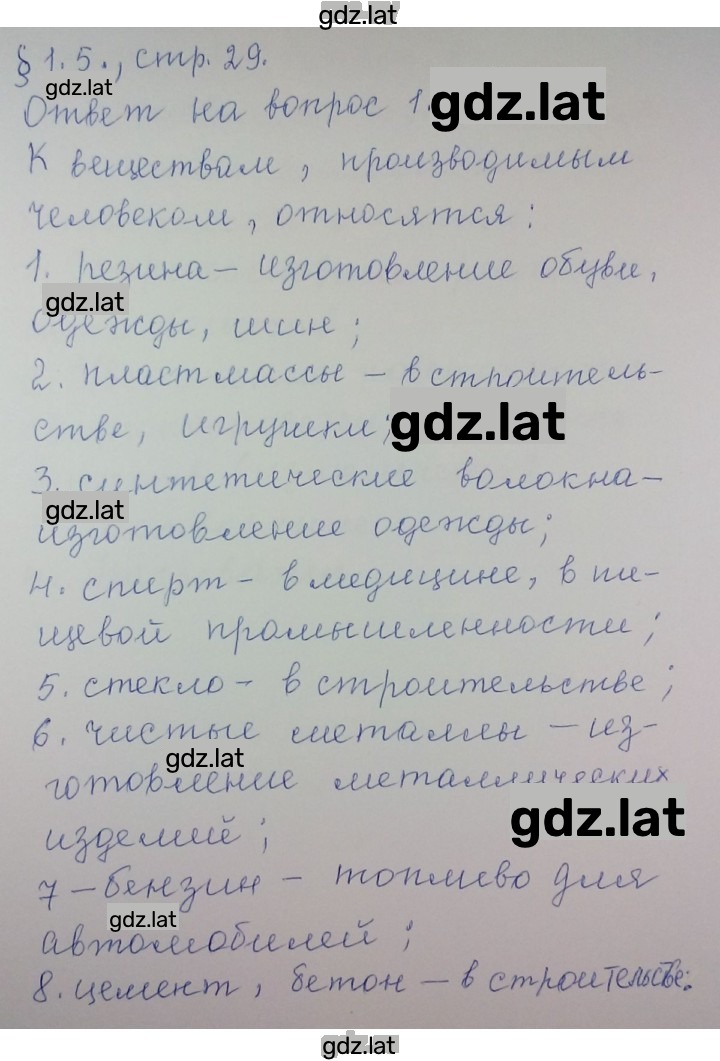 gdz.lat
§ 1.5., стр. 29.
gdz.lat
Ответ на вопрос 1.
gdz.lat
К веществам, производимым
человеком, относятся:
1. резина – изготовление обуви,
gdz.lat
одежды, шин;
2. пластмассы – в строитель-
стве, игрушки;
gdz.lat
3. синтетические волокна –
gdz.lat
изготовление одежды;
4. спирт – в медицине, в пи-
щевой промышленности;
5. стекло – в строительстве;
6. чистые металлы – из-
gdz.lat
готовление металлических
изделий;
gdz.lat
7 – бензин – топливо для
gdz.lat
автомобилей;
8. цемент, бетон – в строительстве.
gdz.lat